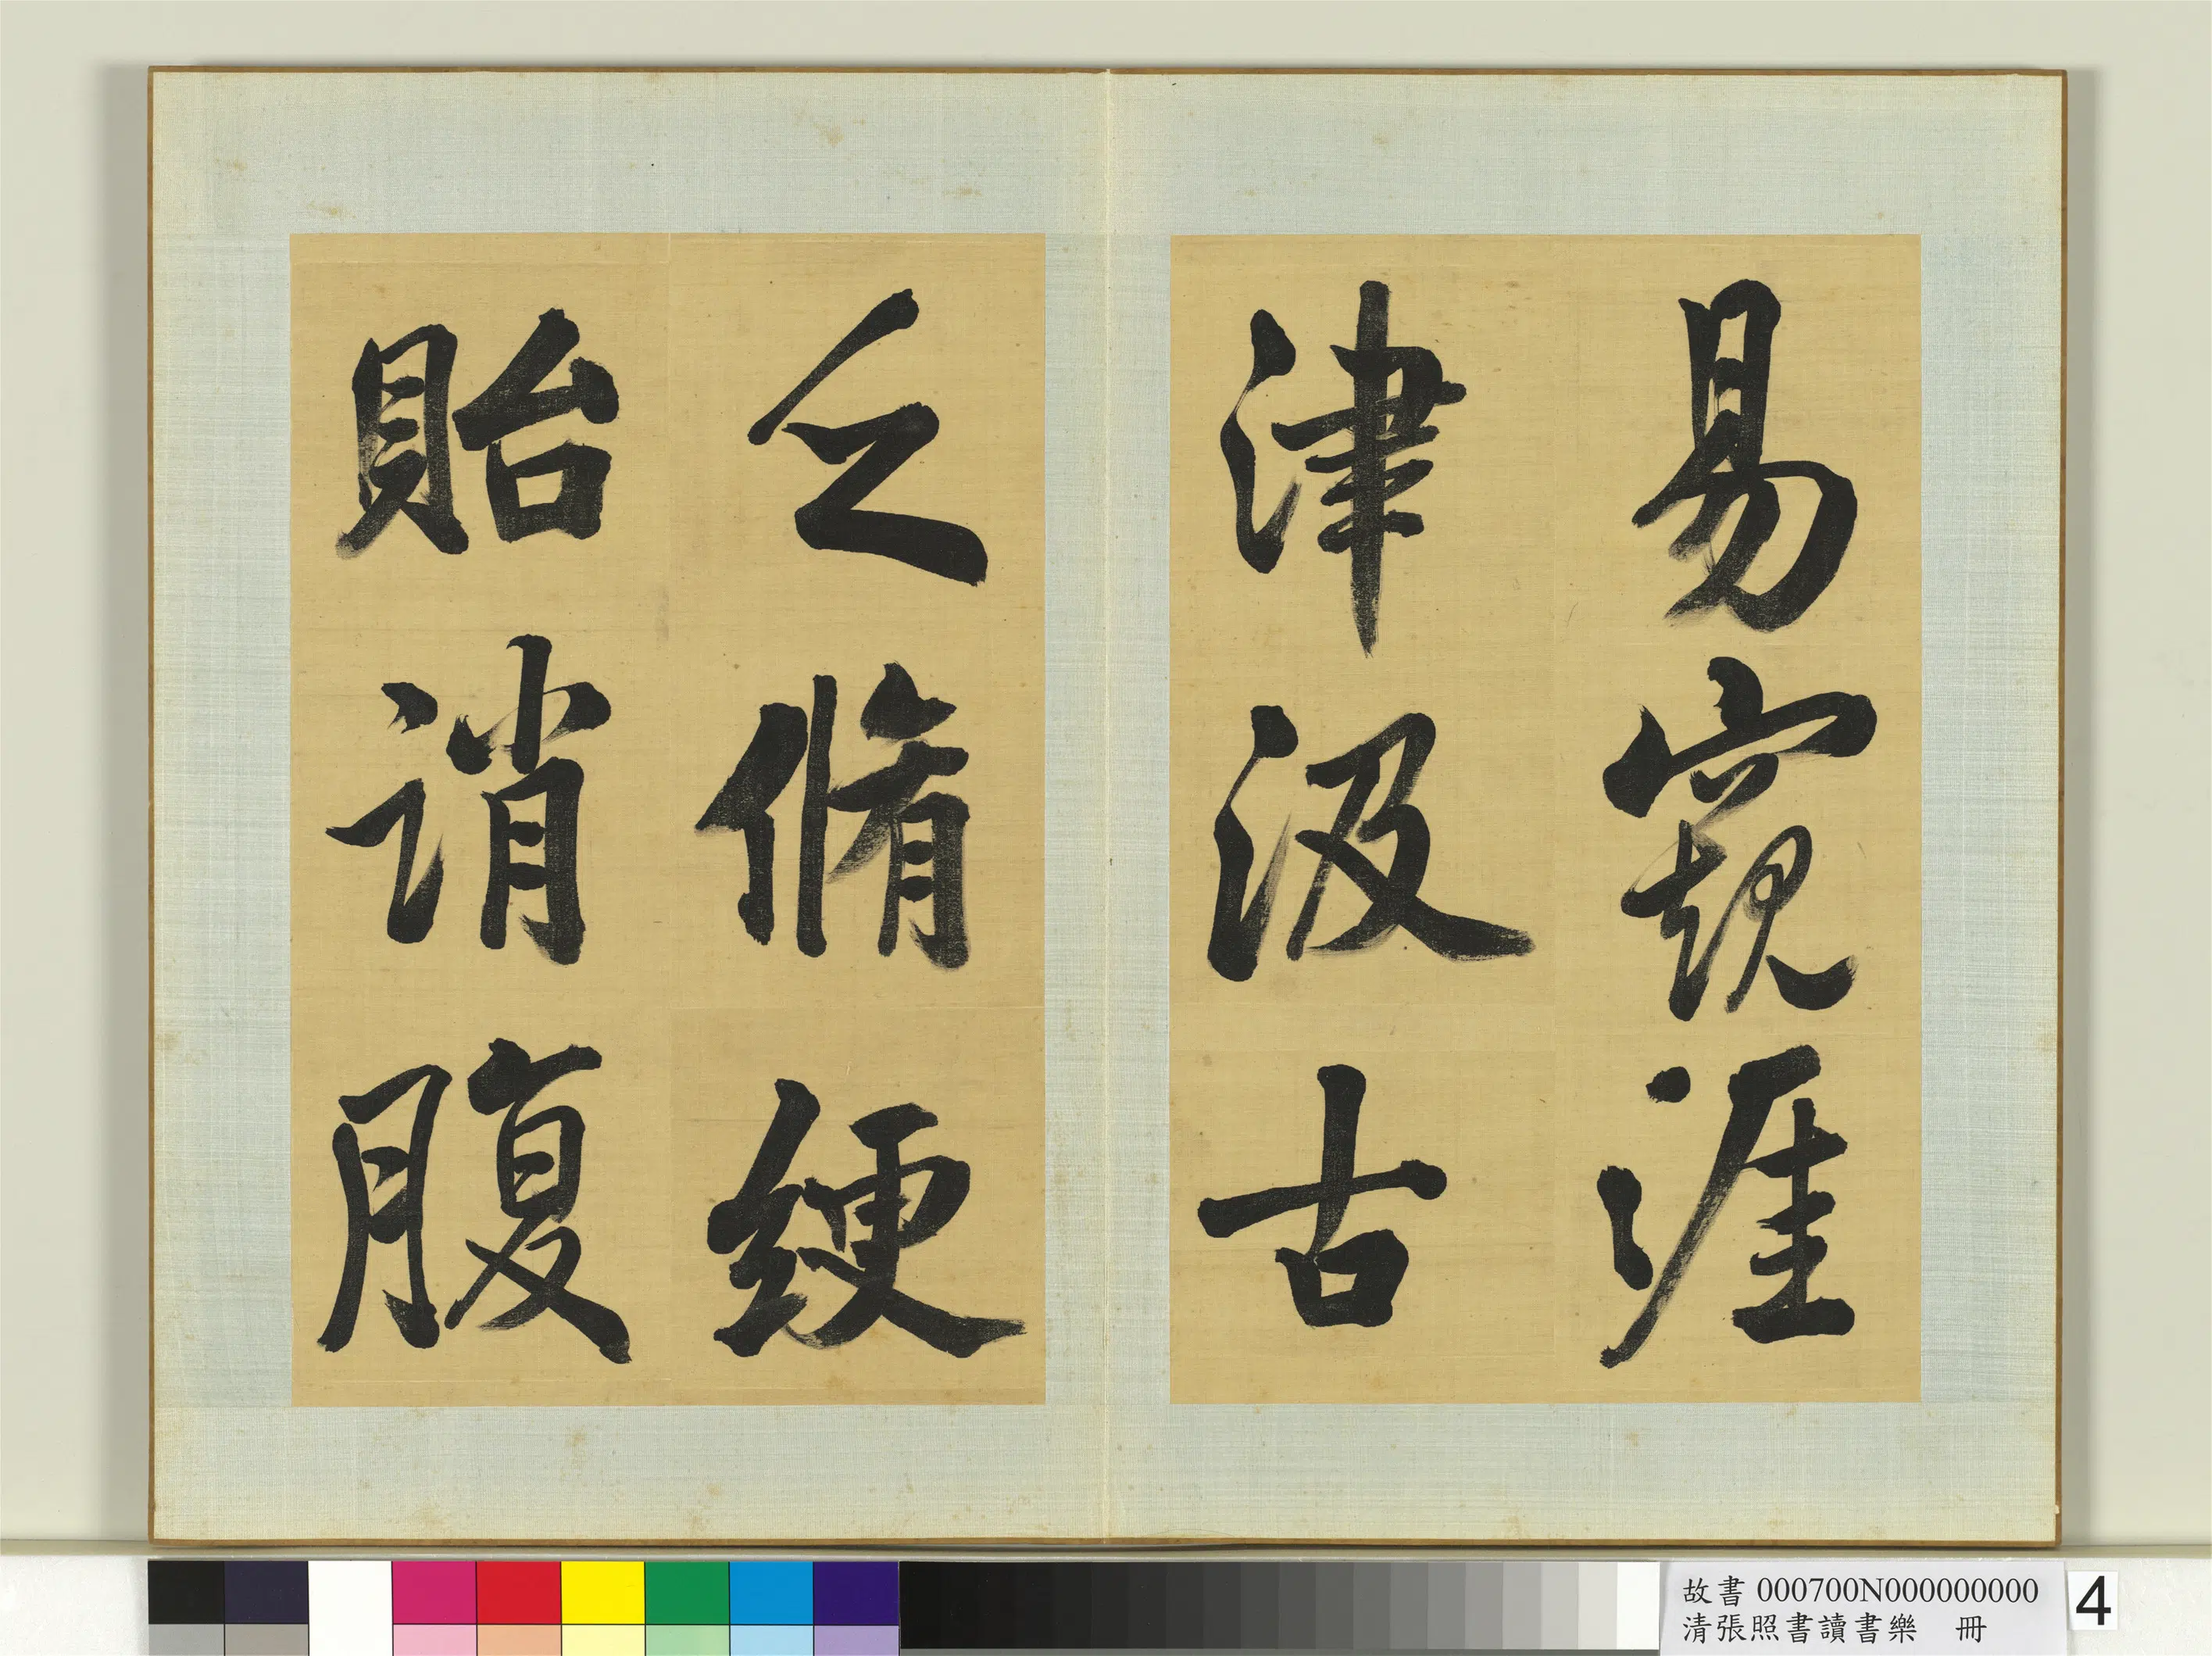 易窺涯
津汲古
乏脩綆
貽誚腹
故書 000700N000000000
清張照書讀書樂 冊
4